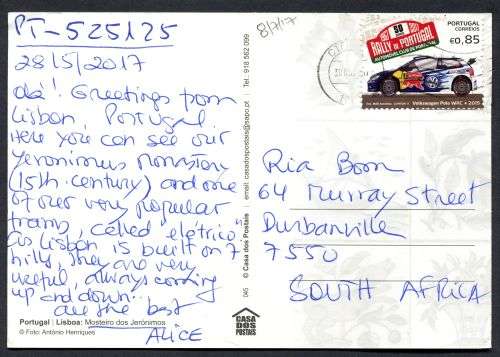 PT-525125
28/5/2017
Olá! Greetings from
Lisbon, Portugal
Here you can see our
Yeronimus Monastery
(15th century) and one
of our very popular
trams, called "eletrico".
As Lisbon is built on 7
hills, they are very
useful, always coming
up and down...
All the best
ALICE
Portugal | Lisboa: Mosteiro dos Jerónimos
© Foto: António Henriques
045 © Casa dos Postais email: casadospostais@sapo.pt Tel: 918 562 099
CASA
DOS
POSTAIS
8/7/17
50
1967 2017
RALLY DE PORTUGAL
AUTOMÓVEL CLUB DE PORTUGAL
PORTUGAL
CORREIOS
€0,85
Volkswagen Polo WRC • 2015
Ria Boom
64 Murray Street
Durbanville
7550
SOUTH AFRICA